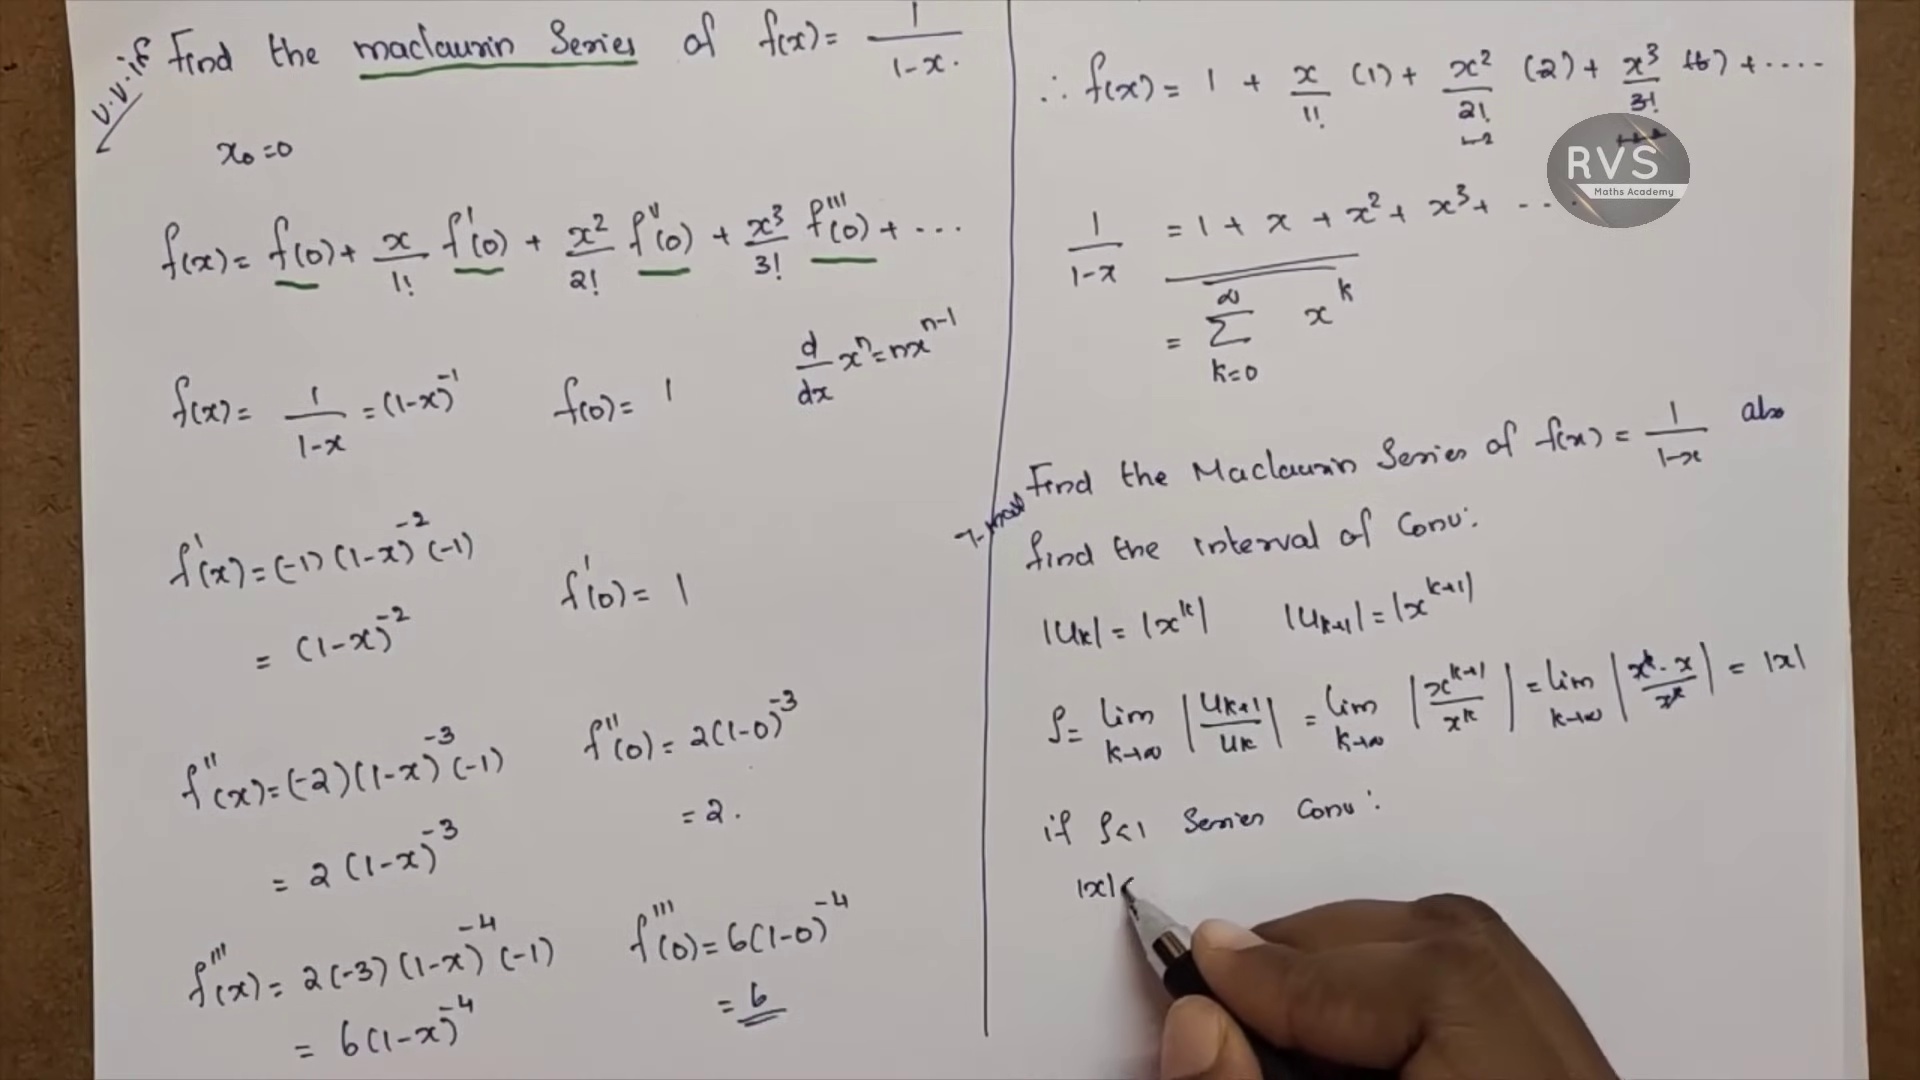 v.v.if Find the maclaurin Series of f(x) = 1/(1-x).
x₀=0
f(x) = f(0) + x/1! f'(0) + x²/2! f''(0) + x³/3! f'''(0) + ...
d/dx xⁿ = nxⁿ⁻¹
f(x) = 1/(1-x) = (1-x)⁻¹ f(0) = 1
f'(x) = (-1)(1-x)⁻²(-1)
= (1-x)⁻² f'(0) = 1
f''(x) = (-2)(1-x)⁻³(-1) f''(0) = 2(1-0)⁻³
= 2(1-x)⁻³ = 2.
f'''(x) = 2(-3)(1-x)⁻⁴(-1) f'''(0) = 6(1-0)⁻⁴
= 6(1-x)⁻⁴ = 6
∴ f(x) = 1 + x/1! (1) + x²/2! (2) + x³/3! (6) + ....
1-2
RVS
Maths Academy
1/(1-x) = 1 + x + x² + x³ + ...
= ∑_{k=0}^{∞} x^k
Find the Maclaurin Series of f(x) = 1/(1-x) also
find the interval of Conv:
|u_k| = |x^k| |u_{k+1}| = |x^{k+1}|
ρ = lim_{k→∞} |u_{k+1}/u_k| = lim_{k→∞} |x^{k+1}/x^k| = lim_{k→∞} |x^k·x/x^k| = |x|
if ρ<1 Series Conv:
|x|<